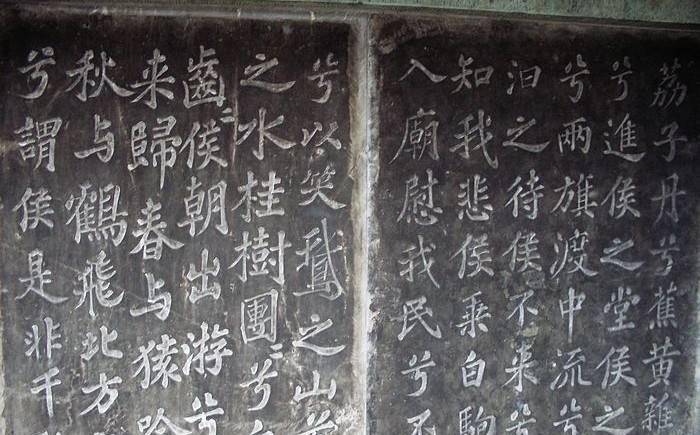 荔子丹兮蕉黄雜
兮進侯之堂侯之
兮兩旗渡中流兮
汩之待侯不来兮
知我悲侯乘白駒
入廟慰我民兮不
兮以笑鵝之山
之水桂樹團〻兮
齒〻侯朝出游兮
来歸春与猿吟
秋与鶴飛北方
兮謂侯是非千